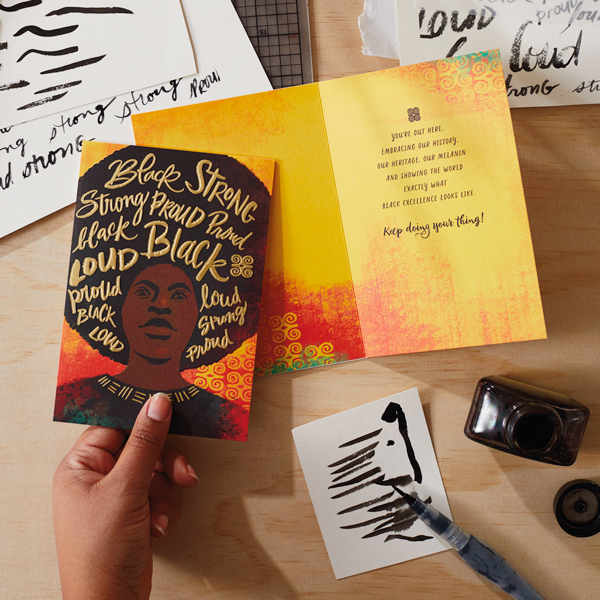 Black STRONG
Strong PROUD Proud
black
LOUD Black
proud loud
BLACK Strong
LOUD proud
YOU'RE OUT HERE,
EMBRACING OUR HISTORY,
OUR HERITAGE, OUR MELANIN
AND SHOWING THE WORLD
EXACTLY WHAT
BLACK EXCELLENCE LOOKS LIKE.
Keep doing your thing!
strong strong proud
strong
LOUD proud loud
Loud
strong